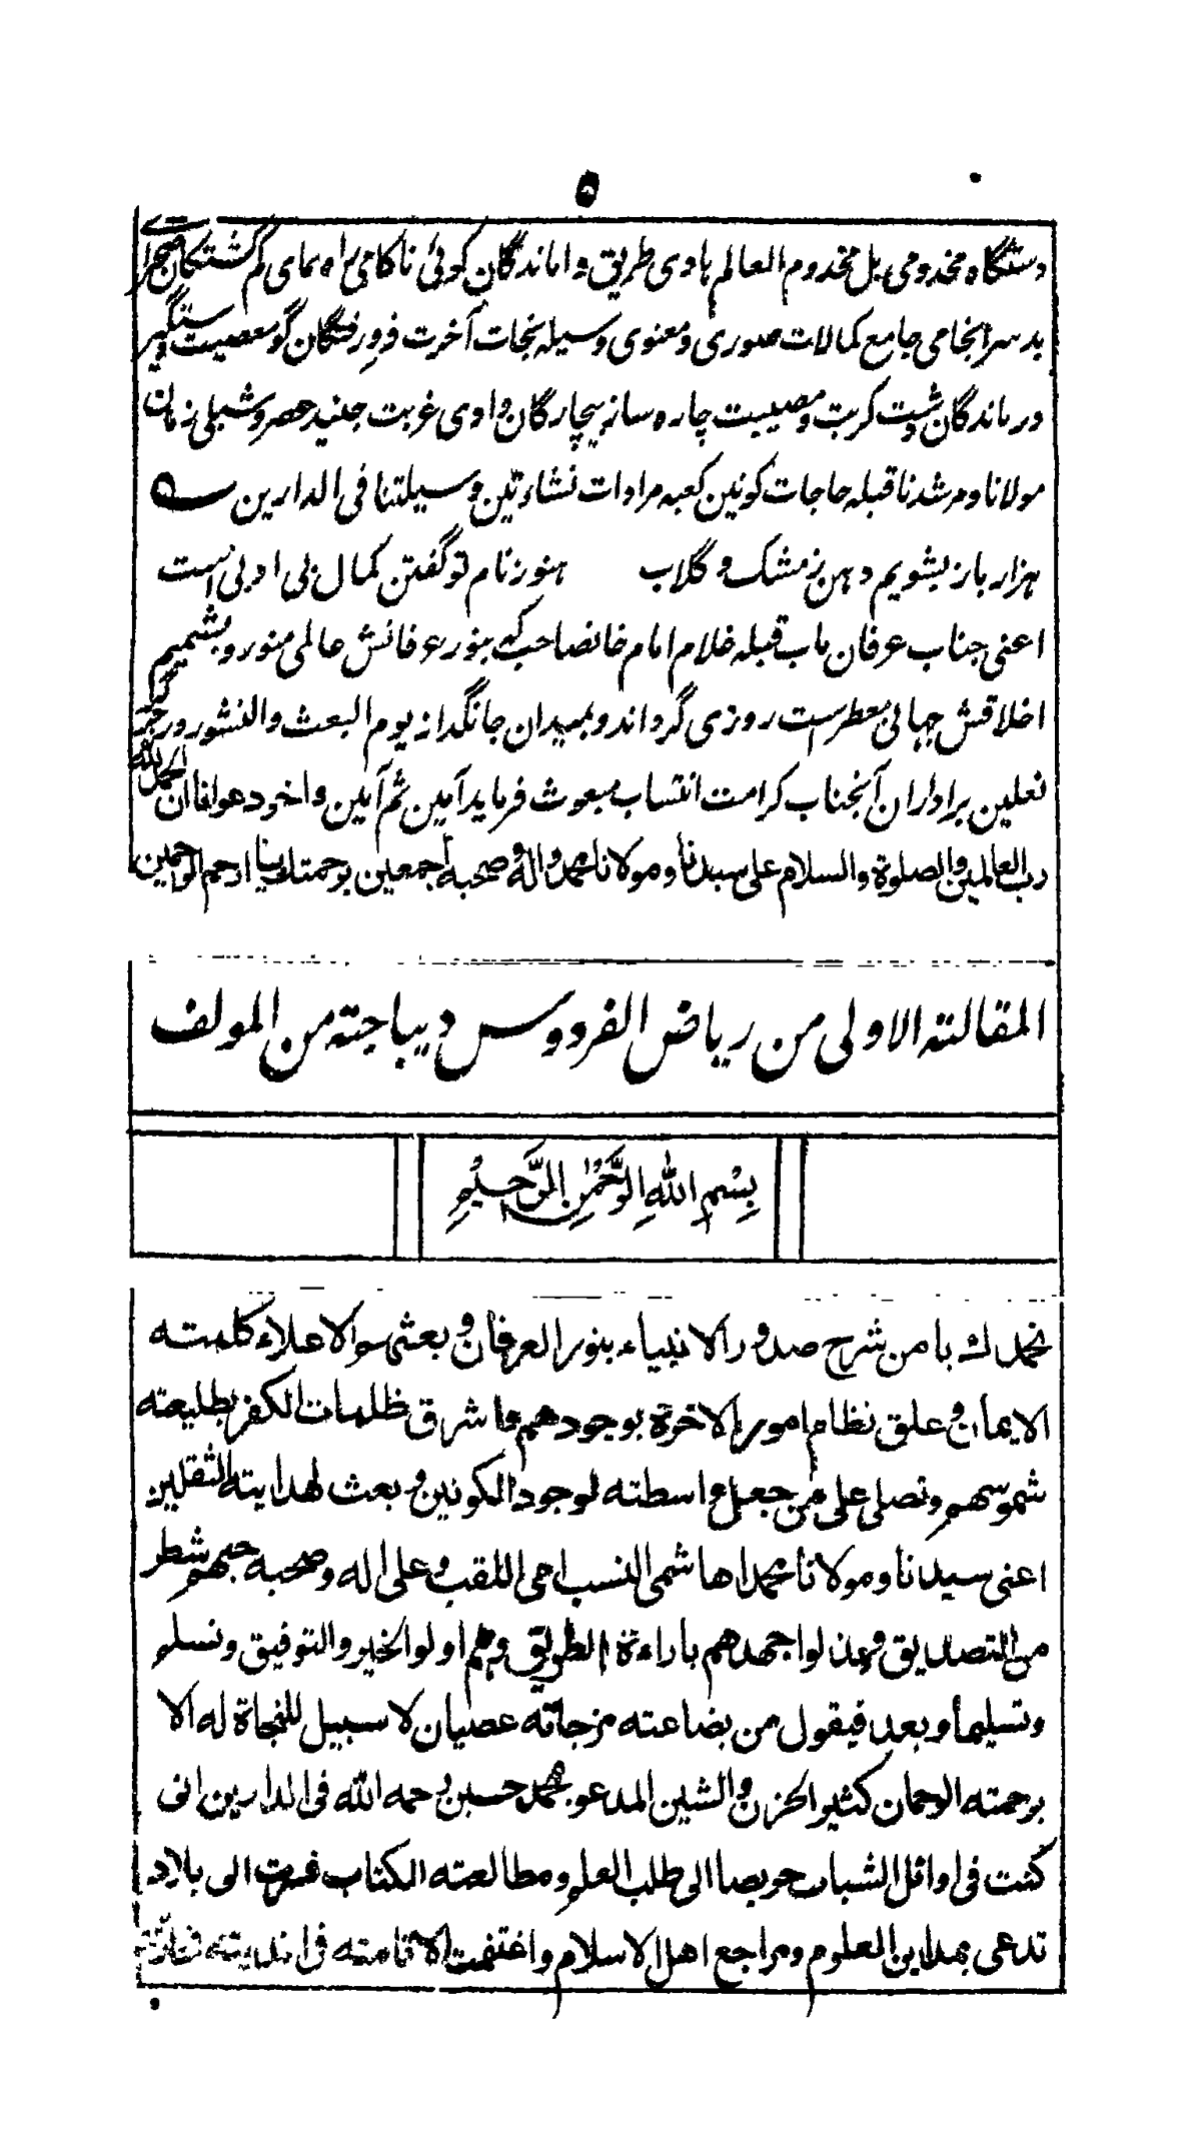 ۵
دستگاه مخدومی بل مخدوم العالم هادی طریق واماندگان کوئی ناکامی راه نمای گم گشتگان صحرای
بدسرانجامی جامع کمالات صوری و معنوی وسیله نجات آخرت فرورفتگان گو معصیت دستگیر
درماندگان دشت کربت و مصیبت چاره ساز بیچارگان وادی غربت جنید عصر و شبلی زمان
مولانا و مرشدنا قبله حاجات کونین کعبه مرادات نشاءتین وسیلتنا فی الدارین
هزار بار بشویم دهن ز مشک و گلاب هنوز نام تو گفتن کمال بی ادبی است
اعنی جناب عرفان ماب قبله غلام امام خانصاحب که بنور عرفانش عالمی منور و بشمیم
اخلاقش جهانی معطرست روزی گرداند و بمیدان جانگداز یوم البعث والنشور در
نعلین برداران آنجناب کرامت انتساب مبعوث فرماید آمین ثم آمین واخر دعوانا ان الحمد لله
رب العالمین والصلوة والسلام علی سیدنا ومولانا محمد واله وصحبه اجمعین برحمتک یا ارحم الراحمین
المقالته الاولی من ریاض الفردوس دیباجته من المولف
بِسْمِ اللهِ الرَّحْمٰنِ الرَّحِيْمِ
نحمدك يا من شرح صدور الانبياء بنور العرفان وبعثهم لاعلاء كلمته
الايمان وعلق نظام امور الاخرة بوجودهم ما شرق ظلمات الكفر بطليعته
شموسهم ونصلى على من جعل واسطته لوجود الكونين وبعث لهدايته الثقلين
اعنى سيدنا ومولانا محمدا هاشمى النسب امى اللقب وعلى اله وصحبه حبهم شطر
من التصديق وبذلوا جهدهم باراءة الطريق وهم اولوا الخير والتوفيق ونسلم
وتسليما وبعد فيقول من بضاعته مزجاته عصيان لا سبيل للنجاة له الا
برحمته الرحمان كثير الحزن والشين المدعو محمد حسين رحمه الله فى الدارين انى
كنت فى اوائل الشباب حريصا الى طلب العلم ومطالعته الكتاب فسرت الى بلاد
تدعى بمداين العلوم ومراجع اهل الاسلام واغتنمت الاقامته فى انديته